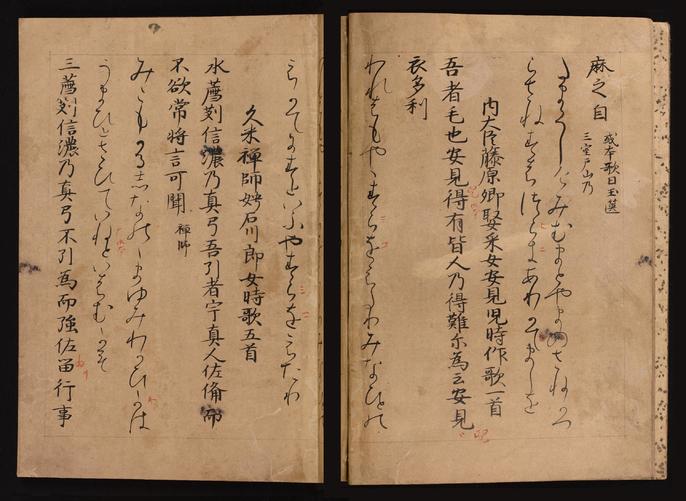 麻之自 或本歌曰玉匣
三室戸山乃
たまくしけみむまとやまのさねかつ
らさねすはつひにあわかてましを
内大臣藤原卿娶采女安見児時作歌一首
吾者毛也安見得有皆人乃得難尓為云安見
衣多利
われはもやすみこをえたりみなひとの
えかてにすといふやすみこをえたり
久米禅師娉石川郎女時歌五首
水薦苅信濃乃真弓吾引者宇真人佐備而
不欲常将言可聞 禅師
みこもかる志なのゝまゆみわかひかは
うまひとさひていなといはむかも
三薦苅信濃乃真弓不引為而強佐留行事